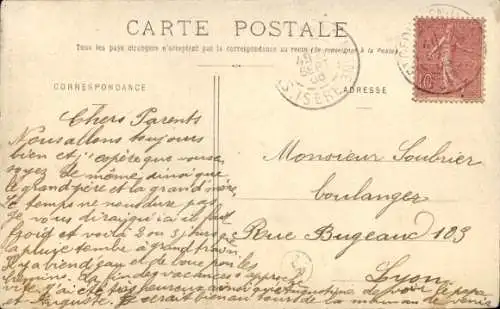 CARTE POSTALE
Tous les pays étrangers n'acceptent pas la correspondance au recto (Se renseigner à la Poste)
CORRESPONDANCE
ADRESSE
Chers Parents
Nous allons toujours
bien et j'espère que vous
soyez de même, ainsi que
le grand père et la grand mère
Le temps ne nous dure pas
je vous dirai qu'ici il fait
froid et voilà 2 ou 3 jours
la pluie tombe à grand train
Il y a bien d'eau et de boue par les
chemins. La fin des vacances approche
vite j'ai été très heureuse ainsi que Augustine de voir le papa
et Auguste. Il serait bien au tour de la maman de venir
Monsieur Soubrier
boulanger
Rue Bugeaud 103
Lyon
SEPT
ISÈRE
10